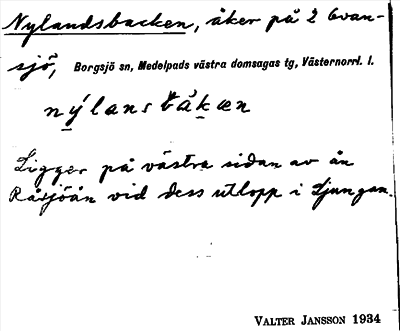 Nylandsbacken, åker på 2 Ovan-
sjö, Borgsjö sn, Medelpads västra domsagas tg, Västernorrl. l.
Ligger på västra sidan av ån
Råsjöån vid dess utlopp i Ljungan.
VALTER JANSSON 1934